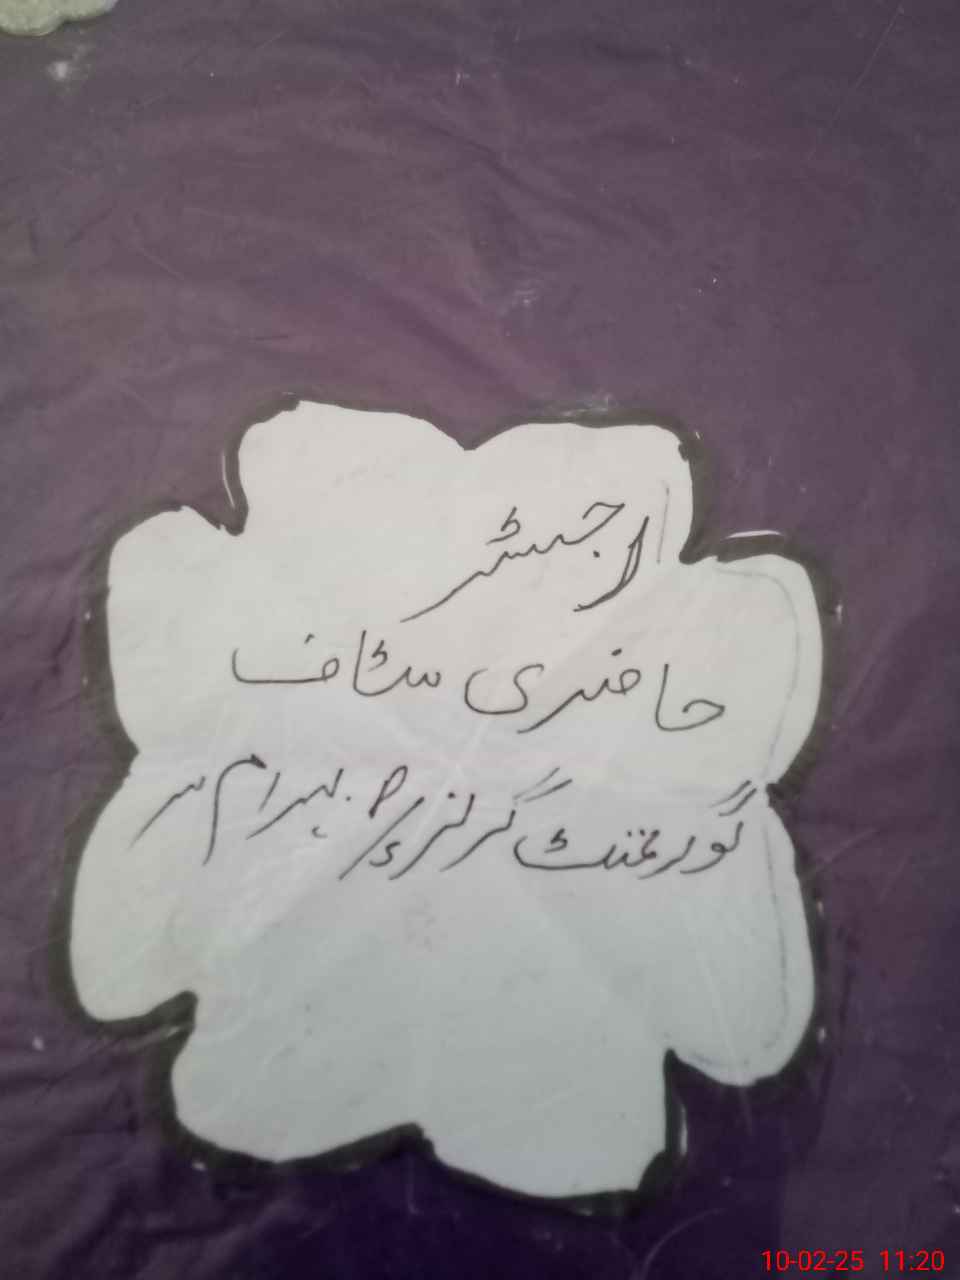 رجسٹر
حاضری سٹاف
گورنمنٹ گرلز
10-02-25 11:20